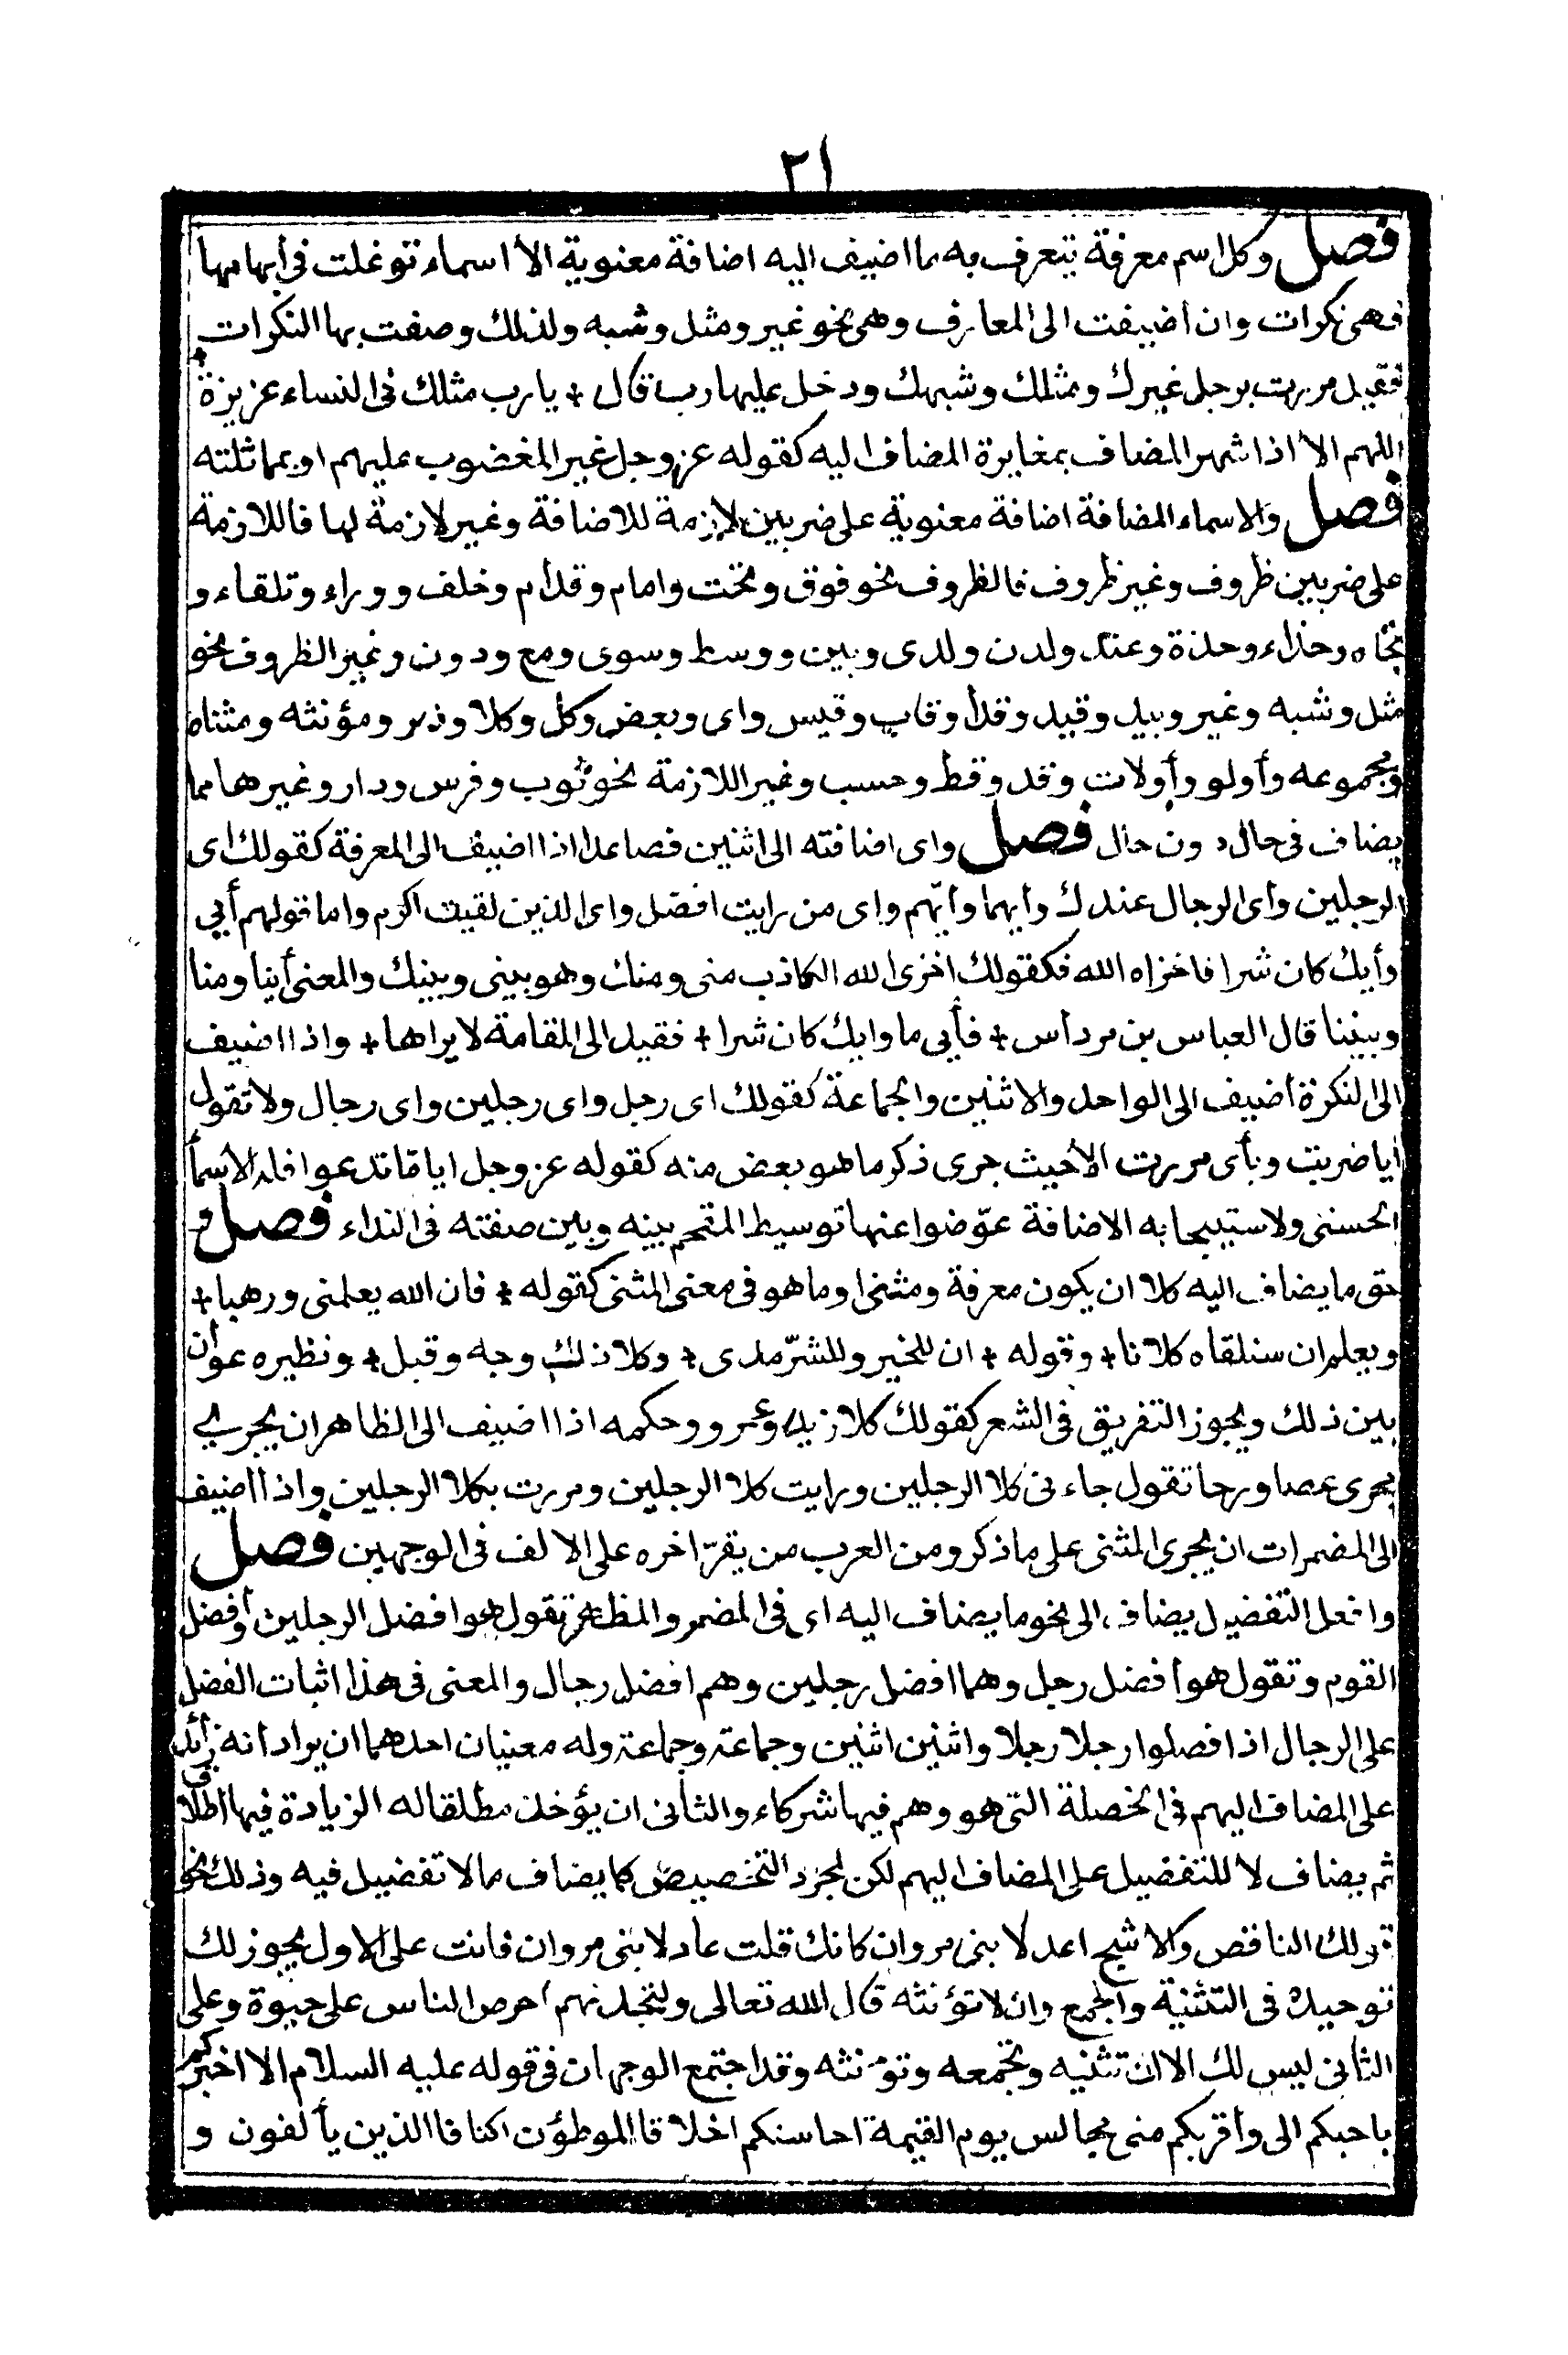 ٢١
فصل وكل اسم معرفة يتعرف به ما اضيف اليه اضافة معنوية الا اسماء توغلت فى ابهامها
فهى نكرات وان أضيفت الى المعارف وهى نحو غير ومثل وشبه ولذلك وصفت بها النكرات
فقيل مررت برجل غيرك ومثلك وشبهك ودخل عليها رب قال + يا رب مثلك فى النساء عزيزة +
اللهم الا اذا شهر المضاف بمغايرة المضاف اليه كقوله عز وجل غير المغضوب عليهم او بمماثلته
فصل والاسماء المضافة اضافة معنوية على ضربين لازمة للاضافة وغير لازمة لها فاللازمة
على ضربين ظروف وغير ظروف فالظروف نحو فوق وتحت وامام وقدام وخلف ووراء وتلقاء و
تجاه وحذاء وحذة وعند ولدن ولدى وبين ووسط وسوى ومع ودون وغير الظروف نحو
مثل وشبه وغير وبيد وقيد وقدا وقاب وقيس واى وبعض وكل وكلا وذو ومؤنثه ومثناه
ومجموعه وأولو وأولات وقد وقط وحسب وغير اللازمة نحو ثوب وفرس ودار وغيرها مما
يضاف فى حال دون حال فصل واى اضافته الى اثنين فصاعدا اذا اضيف الى المعرفة كقولك اى
الرجلين وأى الرجال عندك وأيهما وأيّهم واى من رايت افضل واى الذين لقيت اكرم واما قولهم أيي
وأيك كان شرا فاخزاه الله فكقولك اخزى الله الكاذب منى ومنك وهو بينى وبينك والمعنى أينا ومنا
وبيننا قال العباس بن مرداس + فأيى ما وايك كان شرا + فقيد الى المقامة لا يراها + واذا اضيف
الى النكرة أضيف الى الواحد والاثنين والجماعة كقولك اى رجل واى رجلين واى رجال ولا تقول
أيا ضربت وبأى مررت الا حيث جرى ذكر ما هو بعض منه كقوله عز وجل ايا ما تدعوا فله الاسمأ
الحسنى ولاستيجابه الاضافة عوّضوا عنها توسيط المقحم بينه وبين صفته فى النداء فصل و
حق ما يضاف اليه كلا ان يكون معرفة ومثنى او ما هو فى معنى المثنى كقوله + فان الله يعلمنى ورهبا +
ويعلم ان سنلقاه كلانا + وقوله + ان للخير وللشرّ مدى + وكلا ذلك وجه وقبل + ونظيره عوان
بين ذلك ويجوز التفريق فى الشعر كقولك كلا زيد وعمرو وحكمه اذا اضيف الى الظاهر ان يجرى
مجرى عصا ورحا تقول جاءنى كلا الرجلين ورايت كلا الرجلين ومررت بكلا الرجلين واذا اضيف
الى المضمرات ان يجرى المثنى على ما ذكر ومن العرب من يقرّ اخره على الالف فى الوجهين فصل
وافعل التفضيل يضاف الى نحو ما يضاف اليه اى فى المضمر والمظهر تقول هو افضل الرجلين وأفضل
القوم وتقول هو أفضل رجل وهما افضل رجلين وهم افضل رجال والمعنى فى هذا اثبات الفضل
على الرجال اذا فصلوا رجلا رجلا واثنين اثنين وجماعة وجماعة وله معنيان احدهما ان يراد انه زأئد
على المضاف اليهم فى الخصلة التى هو وهم فيها شركاء والثانى ان يؤخذ مطلقا له الزيادة فيها اطلاقا
ثم يضاف لا للتفضيل على المضاف اليهم لكن لمجرد التخصيص كما يضاف ما لا تفضيل فيه وذلك نحو
قولك الناقص والاشج اعدلا بنى مروان كانك قلت عادلا بنى مروان فانت على الاول يجوز لك
توحيده فى التثنية والجمع وان لا تؤنثه قال الله تعالى ولتجدنهم احرص الناس على حيوة وعلى
الثانى ليس لك الا ان تثنيه وتجمعه وتؤنثه وقد اجتمع الوجهان فى قوله عليه السلام الا اخبركم
باحبكم الى وأقربكم منى مجالس يوم القيمة احاسنكم اخلاقا الموطؤن اكنافا الذين يألفون و